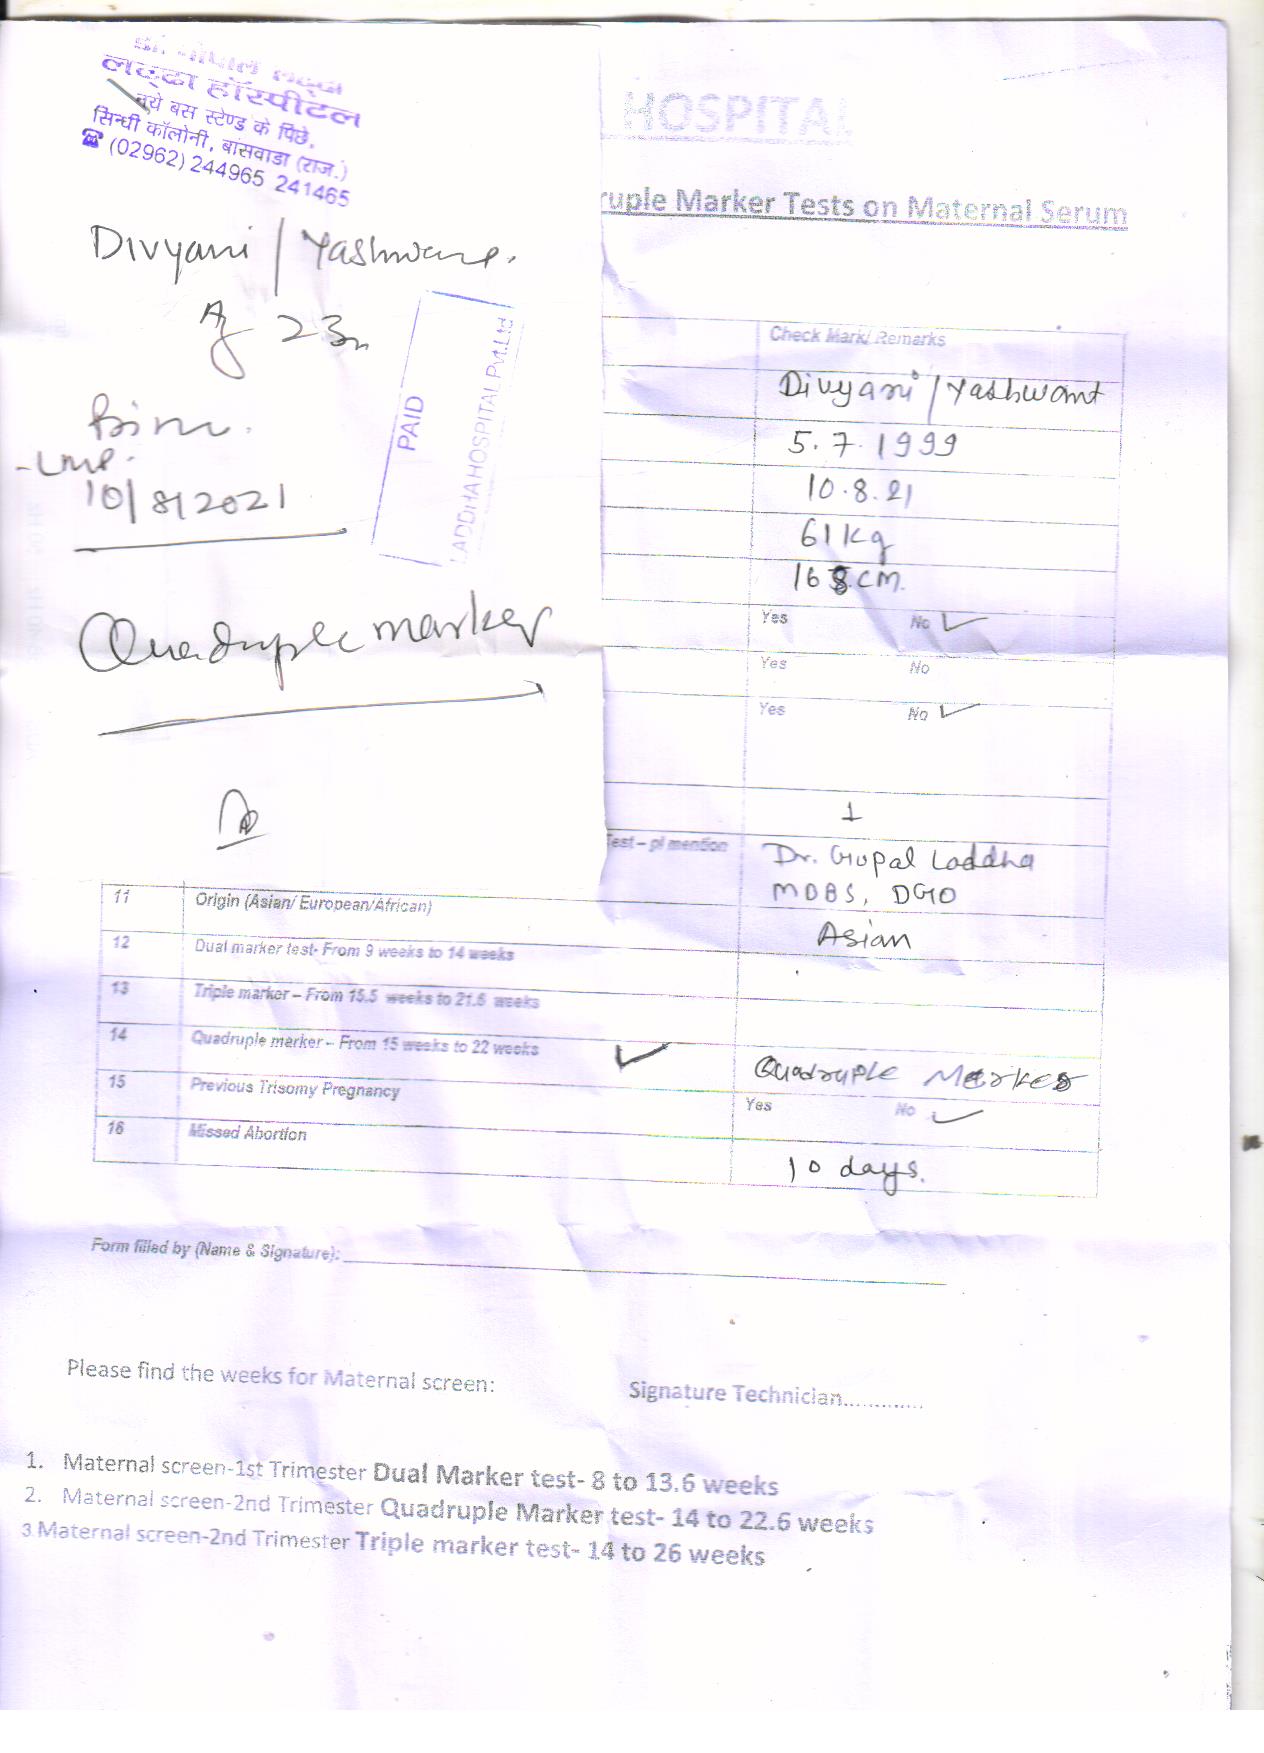 लद्ढा हॉस्पीटल
नये बस स्टेण्ड के पिछे,
सिन्धी कॉलोनी, बांसवाडा (राज.)
☎ (02962) 244965 241465
Divyani / Yashwant
23
LMP.
10/8/2021
Quadruple marker
PAID
LADDHA HOSPITAL Pvt.Ltd
HOSPITAL
ruple Marker Tests on Maternal Serum
Check Mark/ Remarks
Divyani / Yashwant
5.7.1999
10.8.21
61 kg
168 cm.
Yes No ✓
Yes No
Yes No ✓
1
Test – pl mention Dr. Gopal Laddha
MBBS, DGO
11 Origin (Asian/ European/African) Asian
12 Dual marker test- From 9 weeks to 14 weeks
13 Triple marker – From 15.5 weeks to 21.6 weeks
14 Quadruple marker – From 15 weeks to 22 weeks ✓ Quadruple Marker
15 Previous Trisomy Pregnancy Yes No ✓
16 Missed Abortion 10 days.
Form filled by (Name & Signature):
Please find the weeks for Maternal screen: Signature Technician.............
1. Maternal screen-1st Trimester Dual Marker test- 8 to 13.6 weeks
2. Maternal screen-2nd Trimester Quadruple Marker test- 14 to 22.6 weeks
3 Maternal screen-2nd Trimester Triple marker test- 14 to 26 weeks